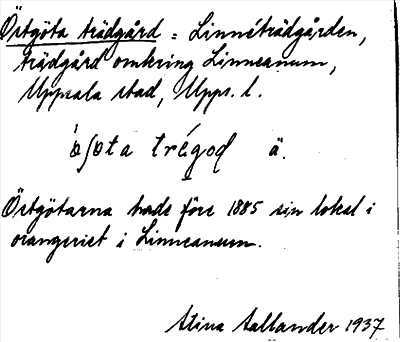 Östgöta trädgård = Linnéträdgården,
trädgård omkring Linneanum,
Uppsala stad, Upps. l.
ä.
Östgötarna hade före 1885 sin lokal i
orangeriet i Linneanum.
Stina Sallander 1937